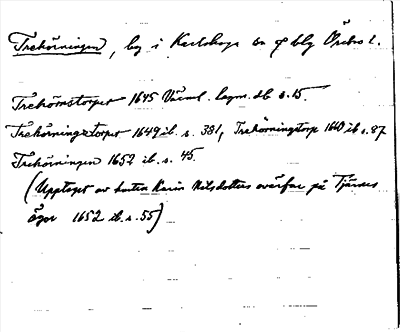 Trehörningen, by i Karlskoga sn o blg Örebro l.
Trehörnstorpet 1645 Värml. lagm. db s. 15.
Trehörningstorpet 1649 ib. s. 381, Trehörningstorp 1660 ib s. 87
Trehörningen 1652 ib. s. 45.
(Upptaget av Karin Nilsdotters svärfar på
ägor 1652 ib. s. 55)